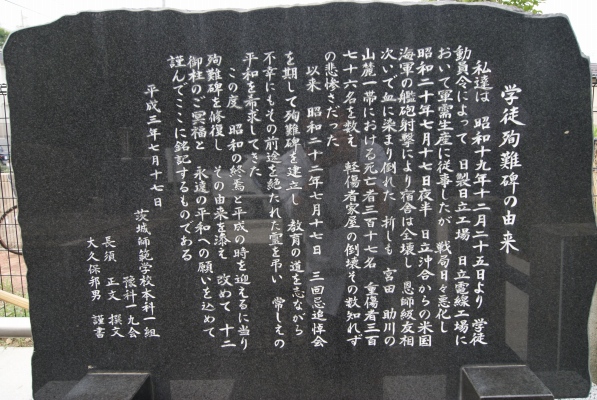 学徒殉難碑の由来
私達は 昭和十九年十二月二十五日より 学徒
動員令によって 日製日立工場 日立電線工場に
おいて軍需生産に従事したが 戦局日々悪化し
昭和二十年七月十七日夜半 日立沖合からの米国
海軍の艦砲射撃により宿舎は全壊し 恩師級友相
次いで血に染まり倒れた 折しも 宮田 助川の
山麓一帯における死亡者三百十七名 重傷者三百
七十六名を数え 軽傷者家屋の倒壊その数知れず
の悲惨さだった
以来 昭和二十二年七月十七日 三回忌追悼会
を期して殉難碑を建立し 教育の道を志ながら
不幸にもその前途を絶たれた霊を弔い 常しえの
平和を希求してきた
この度 昭和の終焉と平成の時を迎えるに当り
殉難碑を修復し その由来を添え 改めて 十二
御柱のご冥福と 永遠の平和への願いを込めて
謹んでここに銘記するものである
平成三年七月十七日
茨城師範学校本科一組
弦科一九会
長須 正文 撰文
大久保邦男 謹書